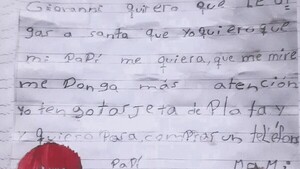 Giovanni quiero que le di
gas a santa que yo quiero que
mi PaPi me quiera, que me mire
me Ponga más atención
yo tengo tarjeta de Plata y
y quiero Para comPrar un teléfon
PaPi MaMi